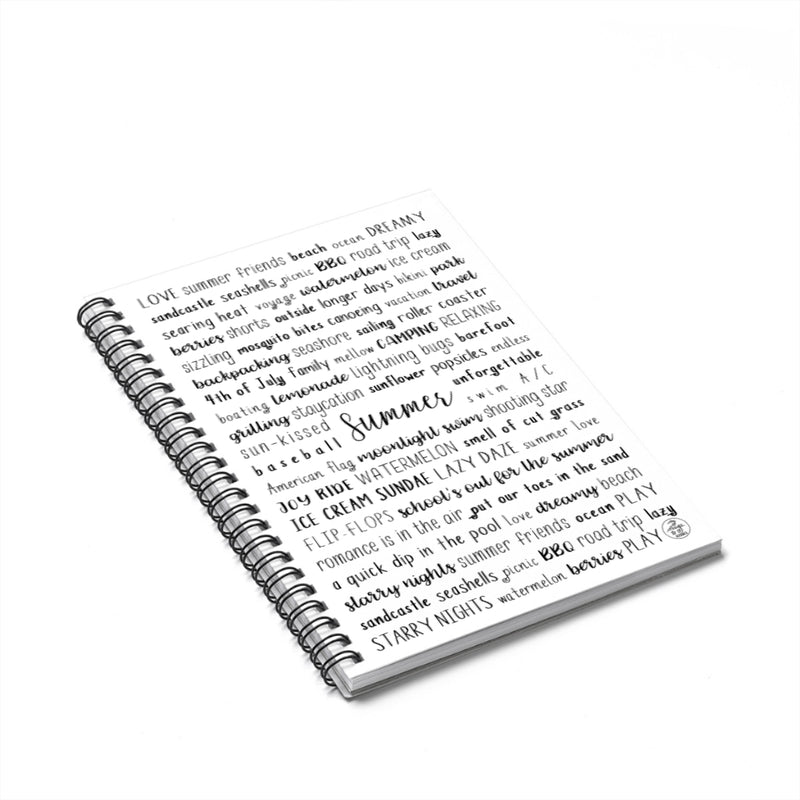 LOVE summer friends beach ocean DREAMY
sandcastle seashells picnic BBQ road trip lazy
searing heat voyage watermelon ice cream
berries shorts outside longer days bikini park
sizzling mosquito bites canoeing vacation travel
backpacking seashore sailing roller coaster
4th of July family mellow CAMPING RELAXING
boating lemonade lightning bugs barefoot
grilling staycation sunflower popsicles endless
sun-kissed Summer unforgettable
baseball swim A/C
American flag moonlight swim shooting star
JOY RIDE WATERMELON smell of cut grass
ICE CREAM SUNDAE LAZY DAZE summer love
FLIP-FLOPS school's out for the summer
romance is in the air put our toes in the sand
a quick dip in the pool love dreamy beach
starry nights summer friends ocean PLAY
sandcastle seashells picnic BBQ road trip lazy
STARRY NIGHTS watermelon berries PLAY